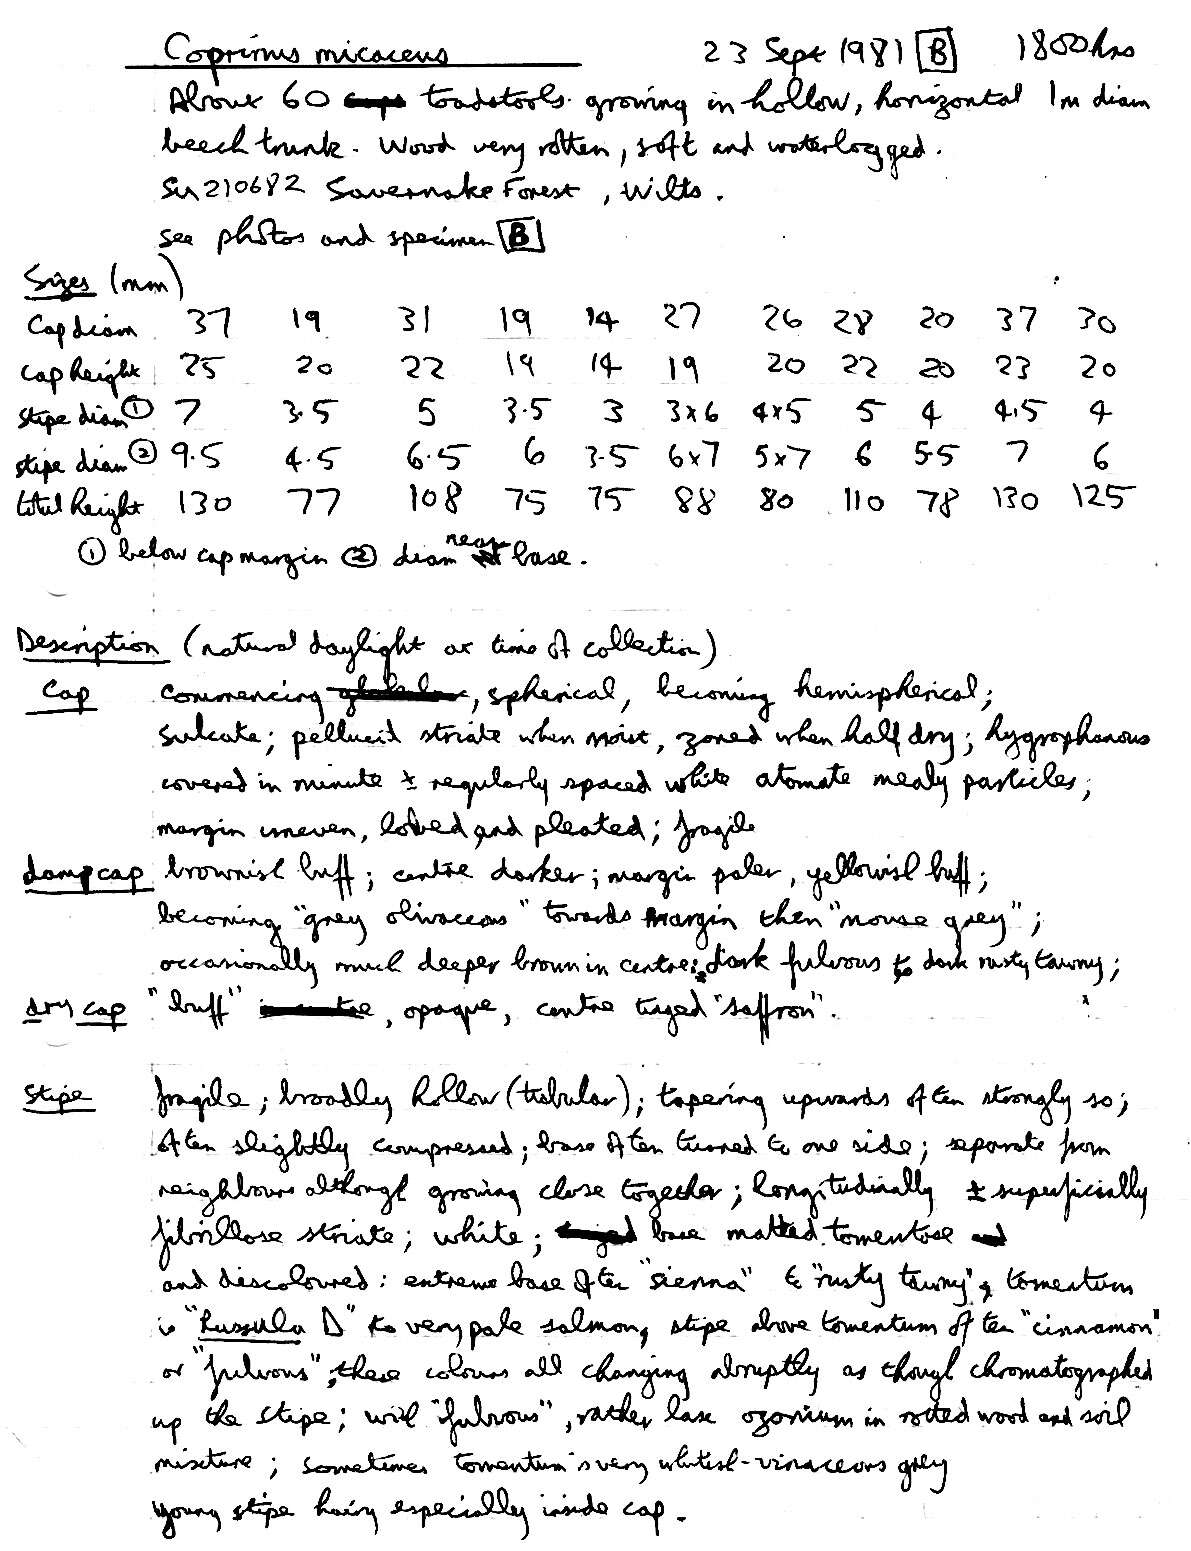 Coprinus micaceus 23 Sept 1981 B 1800hrs
About 60 toadstools growing in hollow, horizontal 1m diam
beech trunk. Wood very rotten, soft and waterlogged.
SU210682 Savernake Forest, Wilts.
see photos and specimen B
Sizes (mm)
Cap diam 37 19 31 19 14 27 26 28 20 37 30
Cap height 25 20 22 19 14 19 20 22 20 23 20
stipe diam ① 7 3.5 5 3.5 3 3x6 4x5 5 4 4.5 4
stipe diam ② 9.5 4.5 6.5 6 3.5 6x7 5x7 6 5.5 7 6
total height 130 77 108 75 75 88 80 110 78 130 125
① below cap margin ② diam near base.
Description (natural daylight at time of collection)
Cap commencing, spherical, becoming hemispherical;
sulcate; pellucid striate when moist, zoned when half dry; hygrophanous
covered in minute ± regularly spaced white atomate mealy particles;
margin uneven, lobed and pleated; fragile
damp cap brownish buff; centre darker; margin paler, yellowish buff;
becoming "grey olivaceous" towards margin then "mouse grey";
occasionally much deeper brown in centre; dark fulvous to dark rusty tawny;
dry cap "buff", opaque, centre tinged "saffron".
Stipe fragile; broadly hollow (tubular); tapering upwards often strongly so;
often slightly compressed; base often turned to one side; separate from
neighbours although growing close together; longitudinally ± superficially
fibrillose striate; white; base matted tomentose
and discoloured: extreme base often "sienna" to "rusty tawny", tomentum
is "Russula D" to very pale salmon, stipe above tomentum often "cinnamon"
or "fulvous", these colours all changing abruptly as though chromatographed
up the stipe; with "fulvous", rather lax ozonium in rotted wood and soil
mixture; sometimes tomentum is very whitish-vinaceous grey
young stipe hairy especially inside cap.